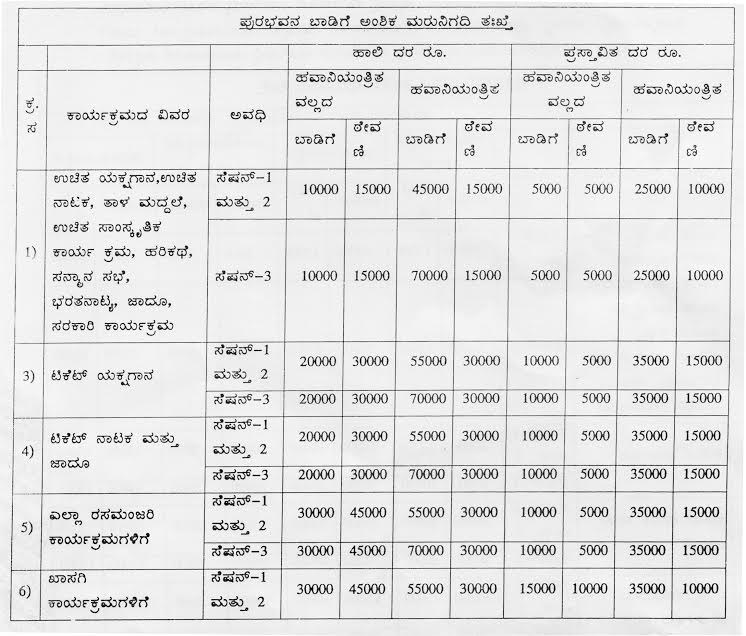 ಪುರಭವನ ಬಾಡಿಗೆ ಅಂಶಿಕ ಮರುನಿಗದಿ ತಃಖ್ತೆ
ಹಾಲಿ ದರ ರೂ. ಪ್ರಸ್ತಾವಿತ ದರ ರೂ.
ಕ್ರ.ಸ ಕಾರ್ಯಕ್ರಮದ ವಿವರ ಅವಧಿ ಹವಾನಿಯಂತ್ರಿತ ವಲ್ಲದ ಹವಾನಿಯಂತ್ರಿತ ಹವಾನಿಯಂತ್ರಿತ ವಲ್ಲದ ಹವಾನಿಯಂತ್ರಿತ
ಬಾಡಿಗೆ ಠೇವಣಿ ಬಾಡಿಗೆ ಠೇವಣಿ ಬಾಡಿಗೆ ಠೇವಣಿ ಬಾಡಿಗೆ ಠೇವಣಿ
1)
ಉಚಿತ ಯಕ್ಷಗಾನ,ಉಚಿತ
ನಾಟಕ, ತಾಳ ಮದ್ದಲೆ,
ಉಚಿತ ಸಾಂಸ್ಕೃತಿಕ
ಕಾರ್ಯ ಕ್ರಮ, ಹರಿಕಥೆ,
ಸನ್ಮಾನ ಸಭೆ,
ಭರತನಾಟ್ಯ, ಜಾದೂ,
ಸರಕಾರಿ ಕಾರ್ಯಕ್ರಮ
ಸೆಷನ್-1 ಮತ್ತು 2 10000 15000 45000 15000 5000 5000 25000 10000
ಸೆಷನ್-3 10000 15000 70000 15000 5000 5000 25000 10000
3) ಟಿಕೆಟ್ ಯಕ್ಷಗಾನ
ಸೆಷನ್-1 ಮತ್ತು 2 20000 30000 55000 30000 10000 5000 35000 15000
ಸೆಷನ್-3 20000 30000 70000 30000 10000 5000 35000 15000
4) ಟಿಕೆಟ್ ನಾಟಕ ಮತ್ತು
ಜಾದೂ
ಸೆಷನ್-1 ಮತ್ತು 2 20000 30000 55000 30000 10000 5000 35000 15000
ಸೆಷನ್-3 20000 30000 70000 30000 10000 5000 35000 15000
5) ಎಲ್ಲಾ ರಸಮಂಜರಿ
ಕಾರ್ಯಕ್ರಮಗಳಿಗೆ
ಸೆಷನ್-1 ಮತ್ತು 2 30000 45000 55000 30000 10000 5000 35000 15000
ಸೆಷನ್-3 30000 45000 70000 30000 10000 5000 35000 15000
6) ಖಾಸಗಿ
ಕಾರ್ಯಕ್ರಮಗಳಿಗೆ
ಸೆಷನ್-1 ಮತ್ತು 2 30000 45000 55000 30000 15000 10000 35000 10000